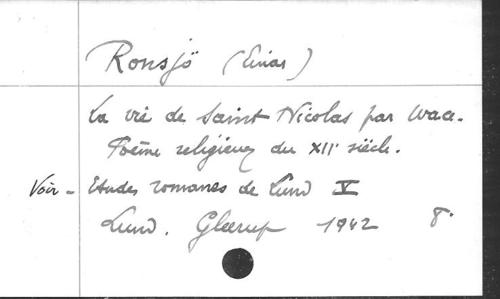 Ronsjö (Einar)
La vie de Saint Nicolas par Wace.
Poème religieux du XII siècle.
Voir - Etudes romanes de Lund V
Lund. Gleerup 1942 8°